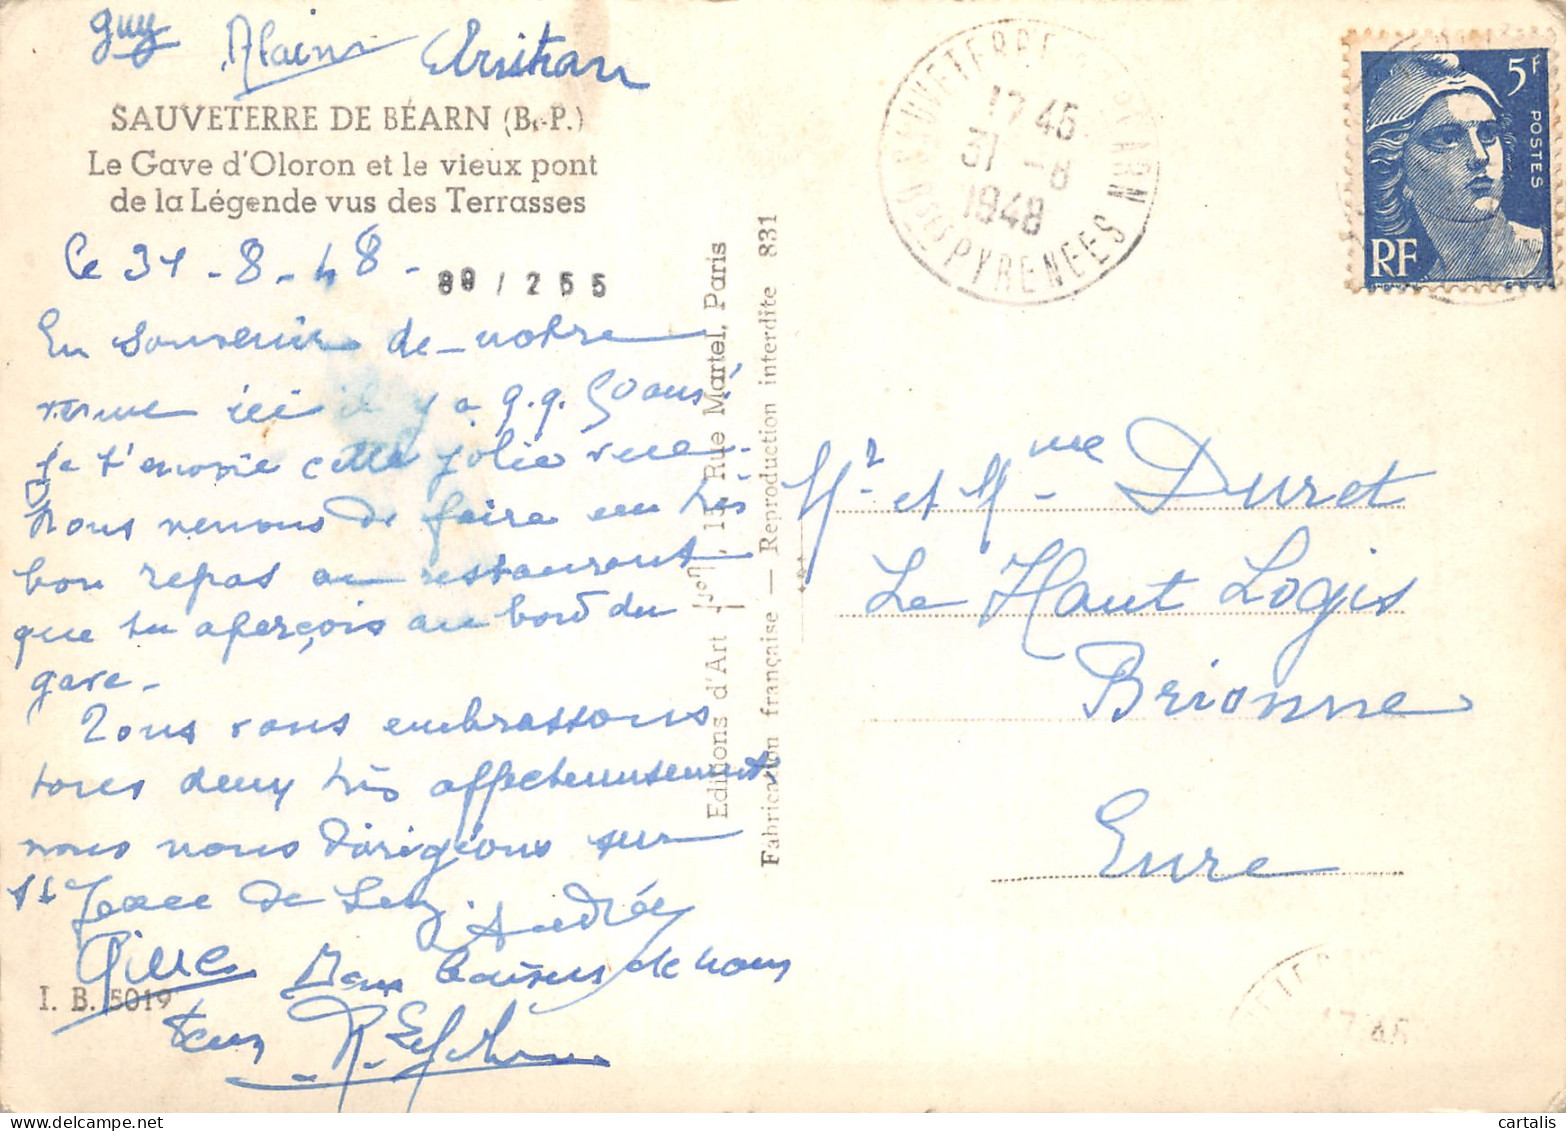 guy Alain
SAUVETERRE DE BÉARN (B.-P.)
Le Gave d'Oloron et le vieux pont
de la Légende vus des Terrasses
Ce 31-8-48-
89/255
En souvenir de notre
venue ici il y a q.q. 50 ans!
Je t'envoie cette jolie vue.
Nous venons de faire un très
bon repas au restaurant
que tu aperçois au bord du
gave-
Nous vous embrassons
tous deux très affectueusement
nous nous dirigeons sur
St Jean de Luz. Andrée
Bons baisers de nous
tous
I. B. 5019
Editions d'Art, 15, Rue Martel, Paris
Fabrication française — Reproduction interdite 831
SAUVETERRE DE BEARN
17 45
31 -8
1948
Bses PYRENEES
5F
POSTES
RF
Mr et Mme Duret
Le Haut Logis
Brionne
Eure
17 45
cartalis